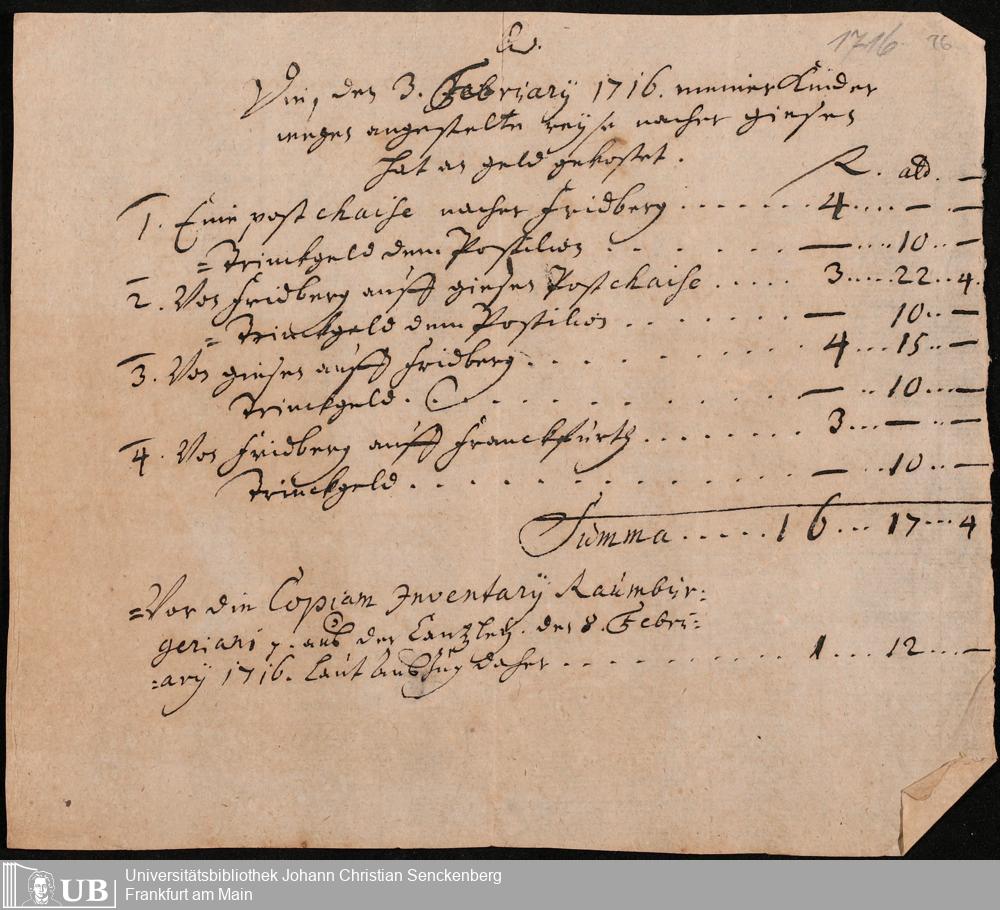 1716. 76
Die, den 3. February 1716. meiner Kinder
wegen angestelte reyse nacher giesen
hat an geld gekostet.
R. alb. —
1. Eine post chaise nacher Fridberg ....... 4 .... — —
= Trinckgeld dem Postilion . . . . . . — .... 10 .. —
2. Von Fridberg auff giesen Post chaise ..... 3 ..... 22 .. 4.
= Trinckgeld dem Postilion . . . . . . — 10 .. —
3. Von giesen auff Fridberg . . . . . . . . . 4 ... 15 .. —
Trinckgeld . . . . . . . . . . . — .. 10 ... —
4. Von Fridberg auff Franckfurth ....... 3 ... — .. —
Trinckgeld . . . . . . . . . . . . — .. 10 .. —
Summa ..... 16 ... 17 ... 4
= Vor die Copiam Inventary Raumbur=
geriani aus der Cantzley. den 8. Febru=
=ary 1716. laut auszug daher . . . . . . . . . . 1 ... 12 ... —
UB Universitätsbibliothek Johann Christian Senckenberg
Frankfurt am Main